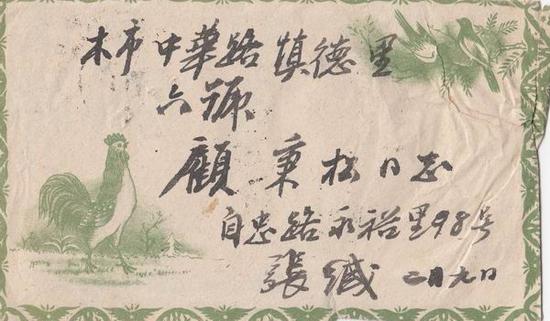 本市中華路慎德里
六號
顧秉松同志
自忠路永裕里98号
張緘 二月九日